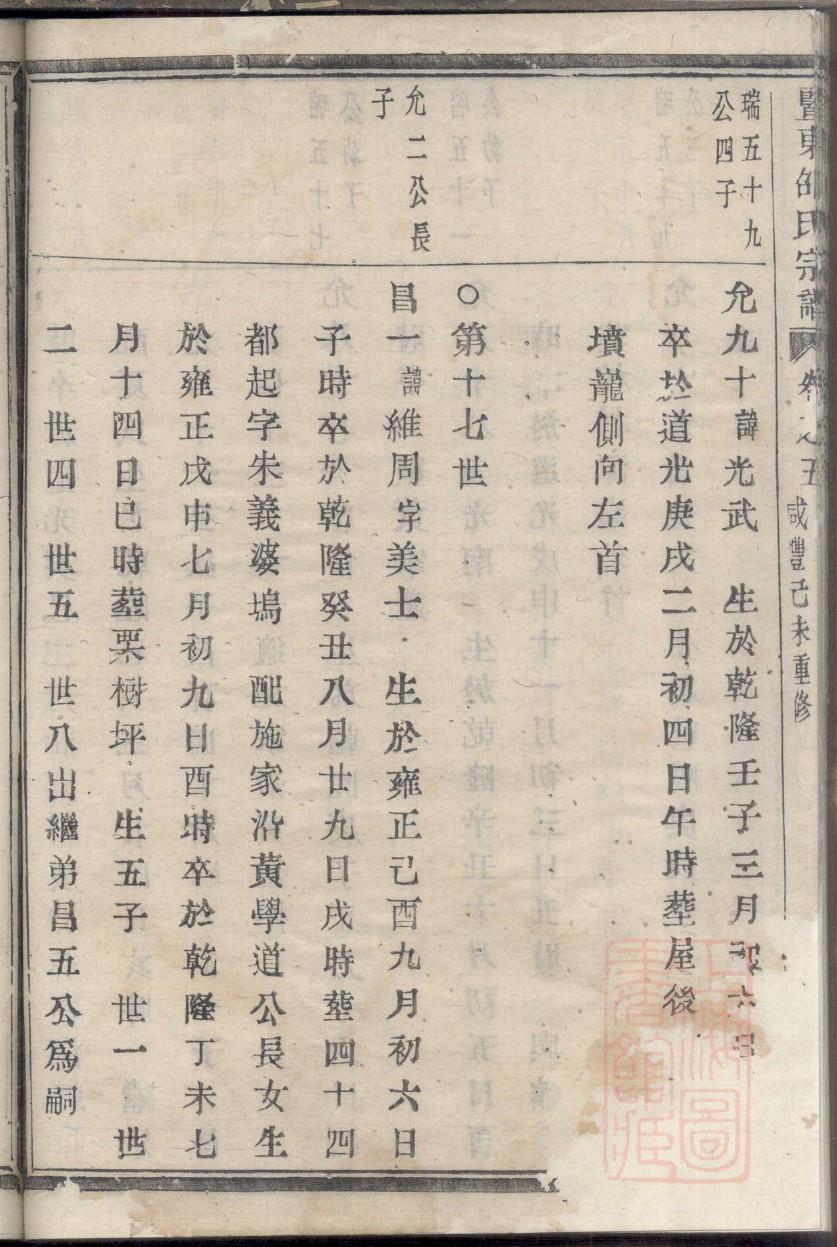 暨東邵氏宗譜 卷之五 咸豐己未重修
瑞五十九
公四子
允九十諱光武 生於乾隆壬子三月初六日
卒於道光庚戌二月初四日午時塟屋後
墳龍側向左首
○第十七世
允二公長
子
昌一諱維周字美士 生於雍正己酉九月初六日
子時卒於乾隆癸丑八月廿九日戌時塟四十四
都起字朱義婆塢 配施家沿黃學道公長女生
於雍正戊申七月初九日酉時卒於乾隆丁未七
月十四日巳時塟栗樹坪 生五子 世一 世
二 世四 世五 世八出繼弟昌五公爲嗣
上海圖
書館藏